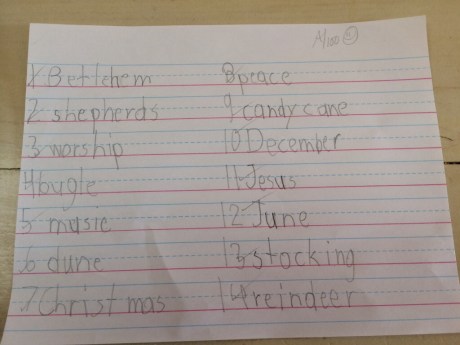 A/100
1 Bethlehem
2 shepherds
3 worship
4 bugle
5 music
6 dune
7 Christmas
8 peace
9 candy cane
10 December
11 Jesus
12 June
13 stocking
14 reindeer